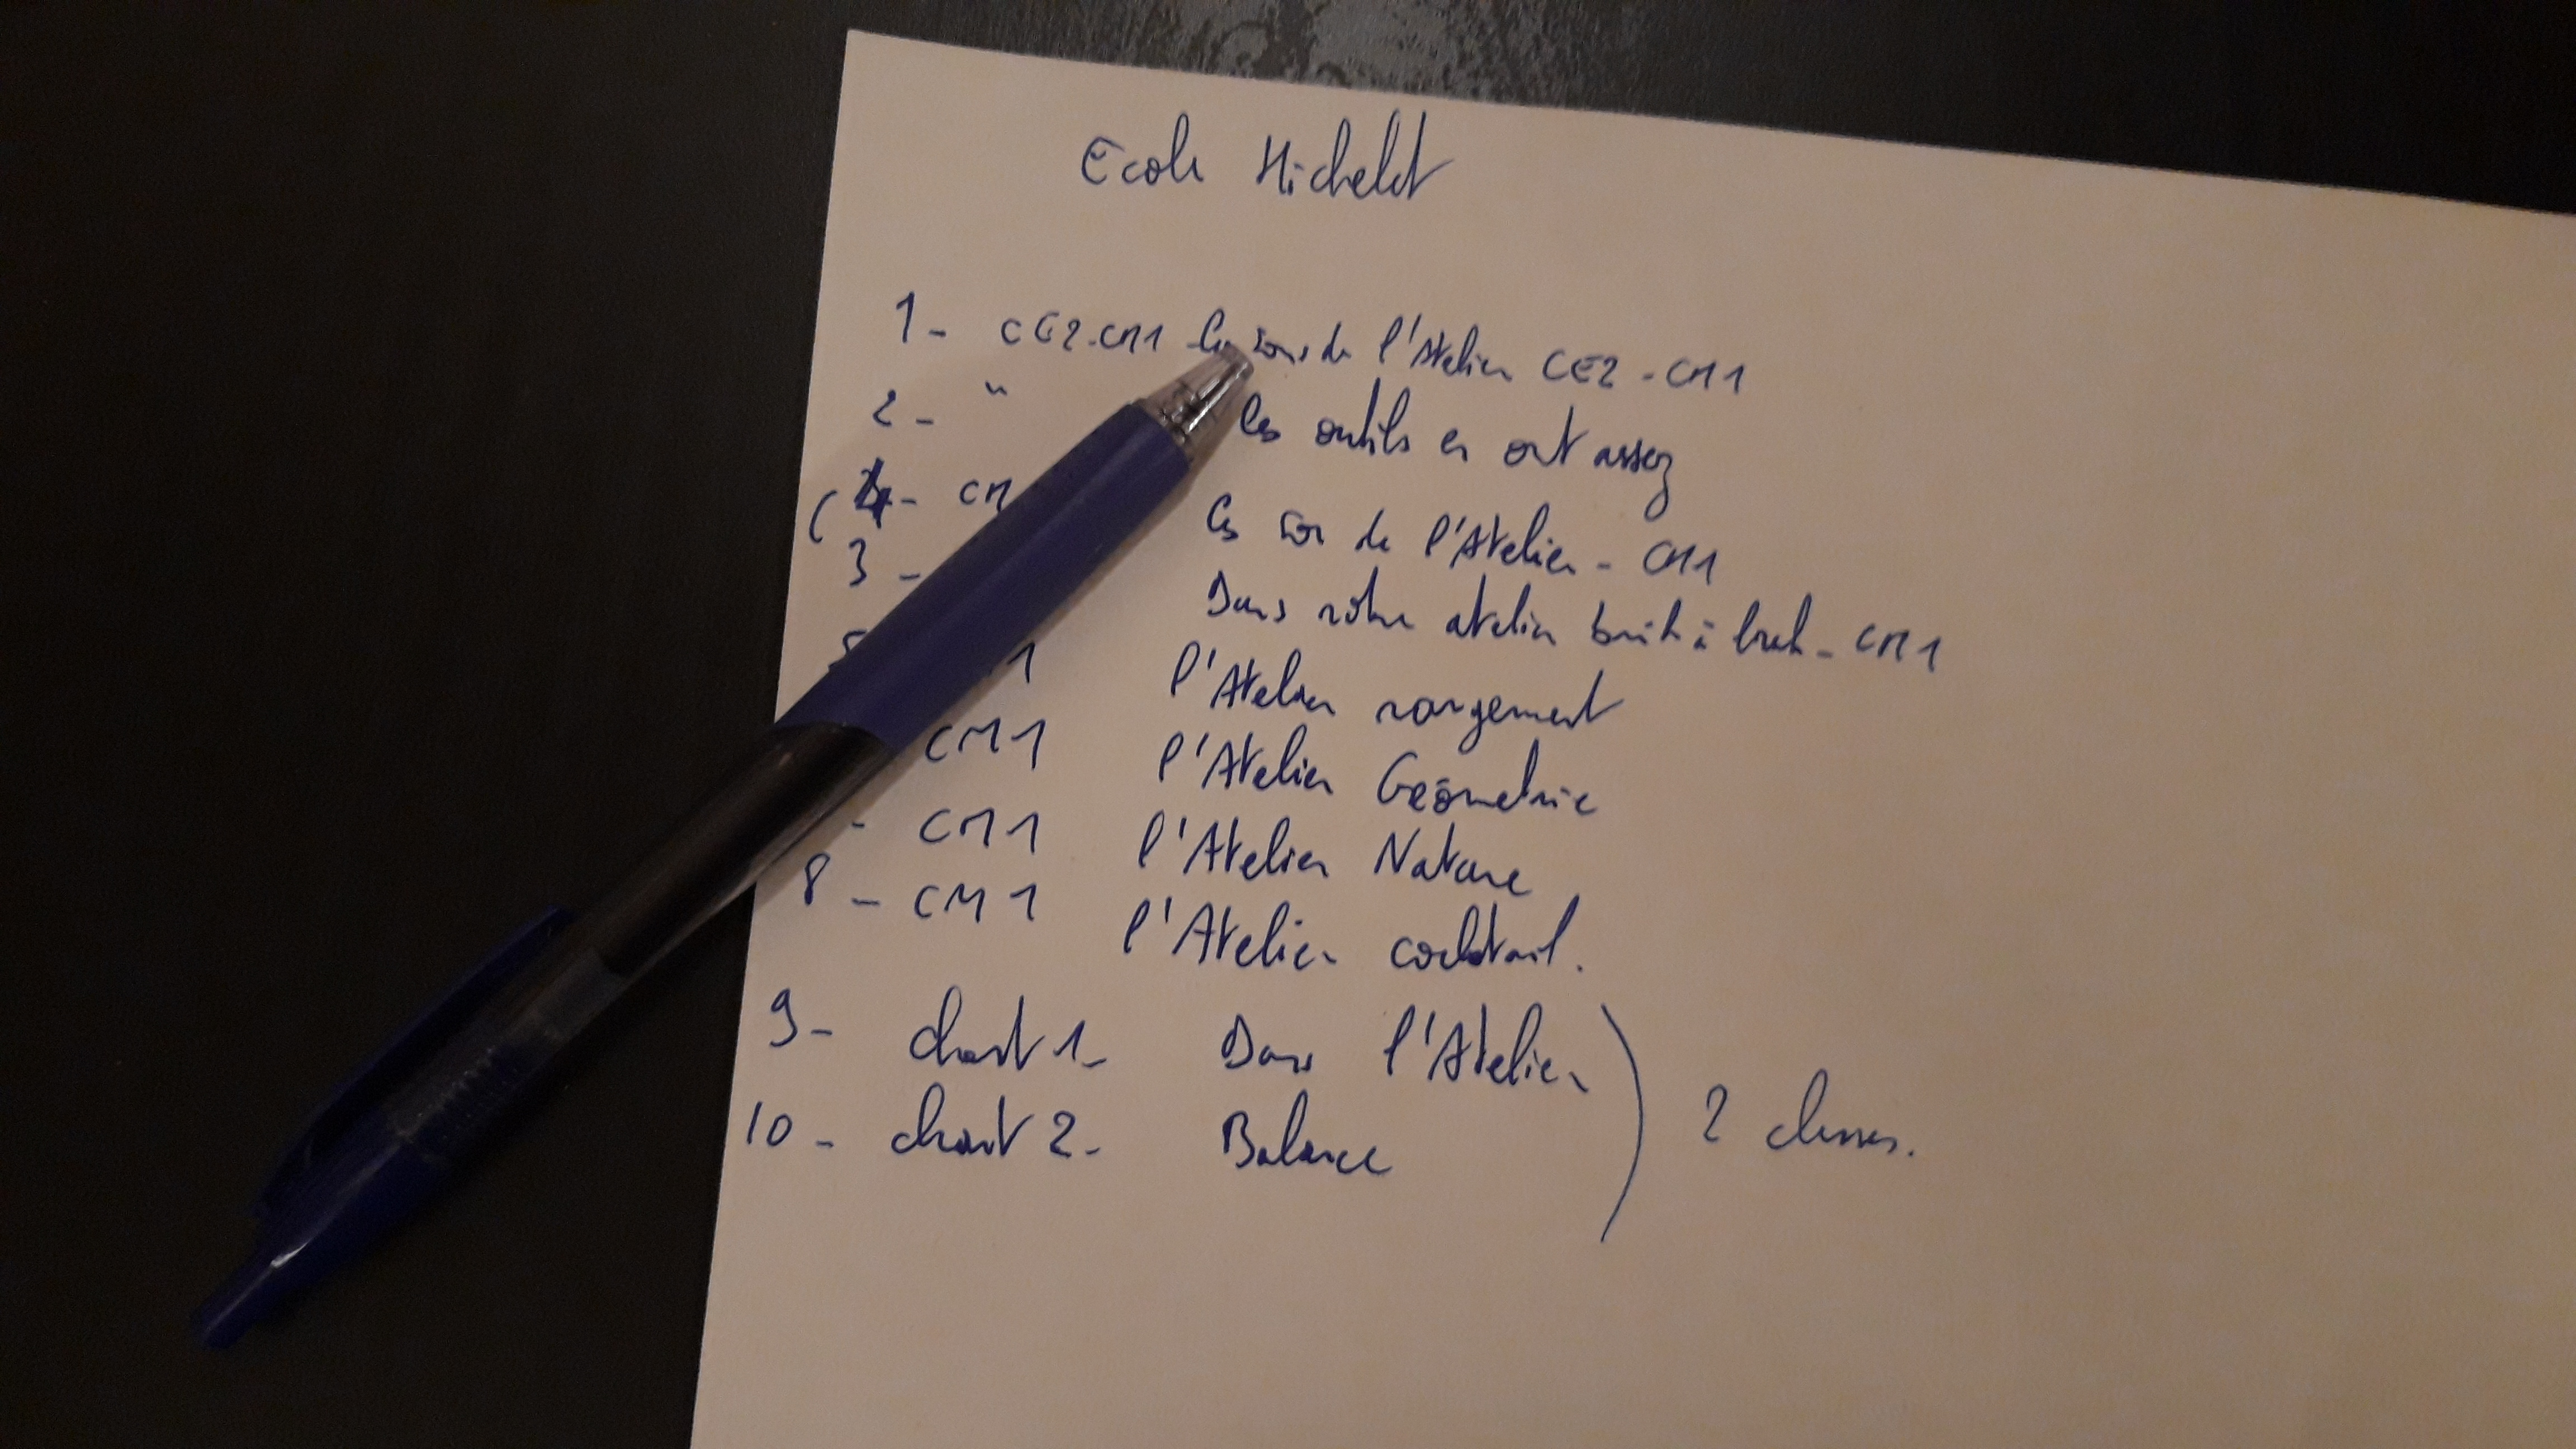 Ecole Michelet
1 - CE2-CM1 Les sons de l'Atelier CE2-CM1
2 - " les outils en ont assez
( 4 - CM les son de l'Atelier - CM1
3 - Dans nôtre atelier - CM1
5 1 l'Atelier rangement
CM1 l'Atelier Géométrie
- CM1 l'Atelier Nature
8 - CM1 l'Atelier cocktail.
9 - chant 1 - Dans l'Atelier
10 - chant 2 - Balance ) 2 classes.